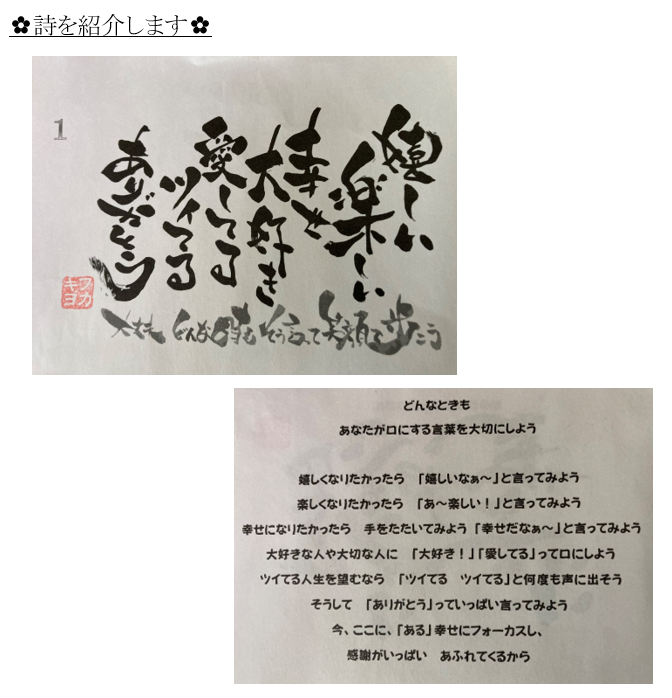 ✿詩を紹介します✿
1
嬉しい
楽しい
幸せ
大好き
愛してる
ツイてる
ありがとう
フカキヨ
大丈夫 どんな時もそう言って笑顔で歩こう
どんなときも
あなたが口にする言葉を大切にしよう
嬉しくなりたかったら 「嬉しいなぁ〜」と言ってみよう
楽しくなりたかったら 「あ〜楽しい!」と言ってみよう
幸せになりたかったら 手をたたいてみよう「幸せだなぁ〜」と言ってみよう
大好きな人や大切な人に 「大好き!」「愛してる」って口にしよう
ツイてる人生を望むなら 「ツイてる ツイてる」と何度も声に出そう
そうして 「ありがとう」っていっぱい言ってみよう
今、ここに、「ある」幸せにフォーカスし、
感謝がいっぱい あふれてくるから